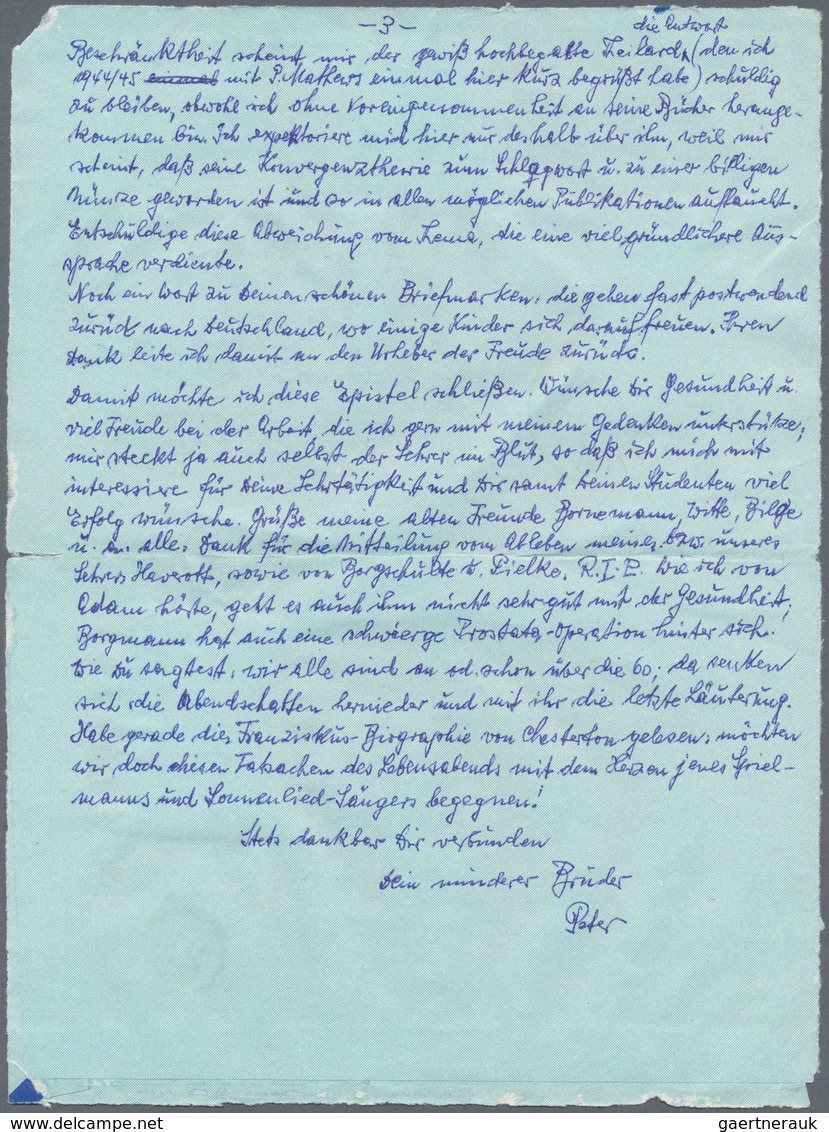 -3-
die Antwort
Beschränktheit scheint mir der gewiß hochbegabte Teilard (den ich
1944/45 einmal mit P. Mathews einmal hier kurz begrüßt habe) schuldig
zu bleiben, obwohl ich ohne Voreingenommenheit an seine Bücher herange-
kommen bin. Ich expektoriere mich hier nur deshalb über ihn, weil mir
scheint, daß seine Konvergenztheorie zum Schlagwort u. zu einer billigen
Münze geworden ist und so in allen möglichen Publikationen auftaucht.
Entschuldige diese Abweichung vom Thema, die eine viel gründlichere Aus-
sprache verdiente.
Noch ein Wort zu Deinen schönen Briefmarken: die gehen fast postwendend
zurück nach Deutschland, wo einige Kinder sich darauf freuen. Ihren
Dank leite ich damit an den Urheber der Freude zurück.
Damit möchte ich diese Epistel schließen. Wünsche Dir Gesundheit u.
viel Freude bei der Arbeit, die ich gern mit meinem Gedenken unterstütze;
mir steckt ja auch selbst der Lehrer im Blut, so daß ich mich mit
interessiere für Deine Lehrtätigkeit und Dir samt Deinen Studenten viel
Erfolg wünsche. Grüße meine alten Freunde Bornemann, Witte, Bilge
u. a. alle. Dank für die Mitteilung vom Ableben meines bzw. unseres
Lehrers Haverott, sowie von Borgschulte u. Pielke. R.I.P. Wie ich von
Adam hörte, geht es auch ihm nicht sehr gut mit der Gesundheit;
Borgmann hat auch eine schwierge Prostata-Operation hinter sich.
Wie Du sagtest: wir alle sind an od. schon über die 60; da senken
sich die Abendschatten hernieder und mit ihr die letzte Läuterung.
Habe gerade die Franziskus-Biographie von Chesterton gelesen: möchten
wir doch diesen Tatsachen des Lebensabends mit dem Herzen jenes Spiel-
manns und Sonnenlied-Sängers begegnen!
Stets dankbar Dir verbunden
Dein minderer Bruder
Peter
gaertnerauk
© www.delcampe.net